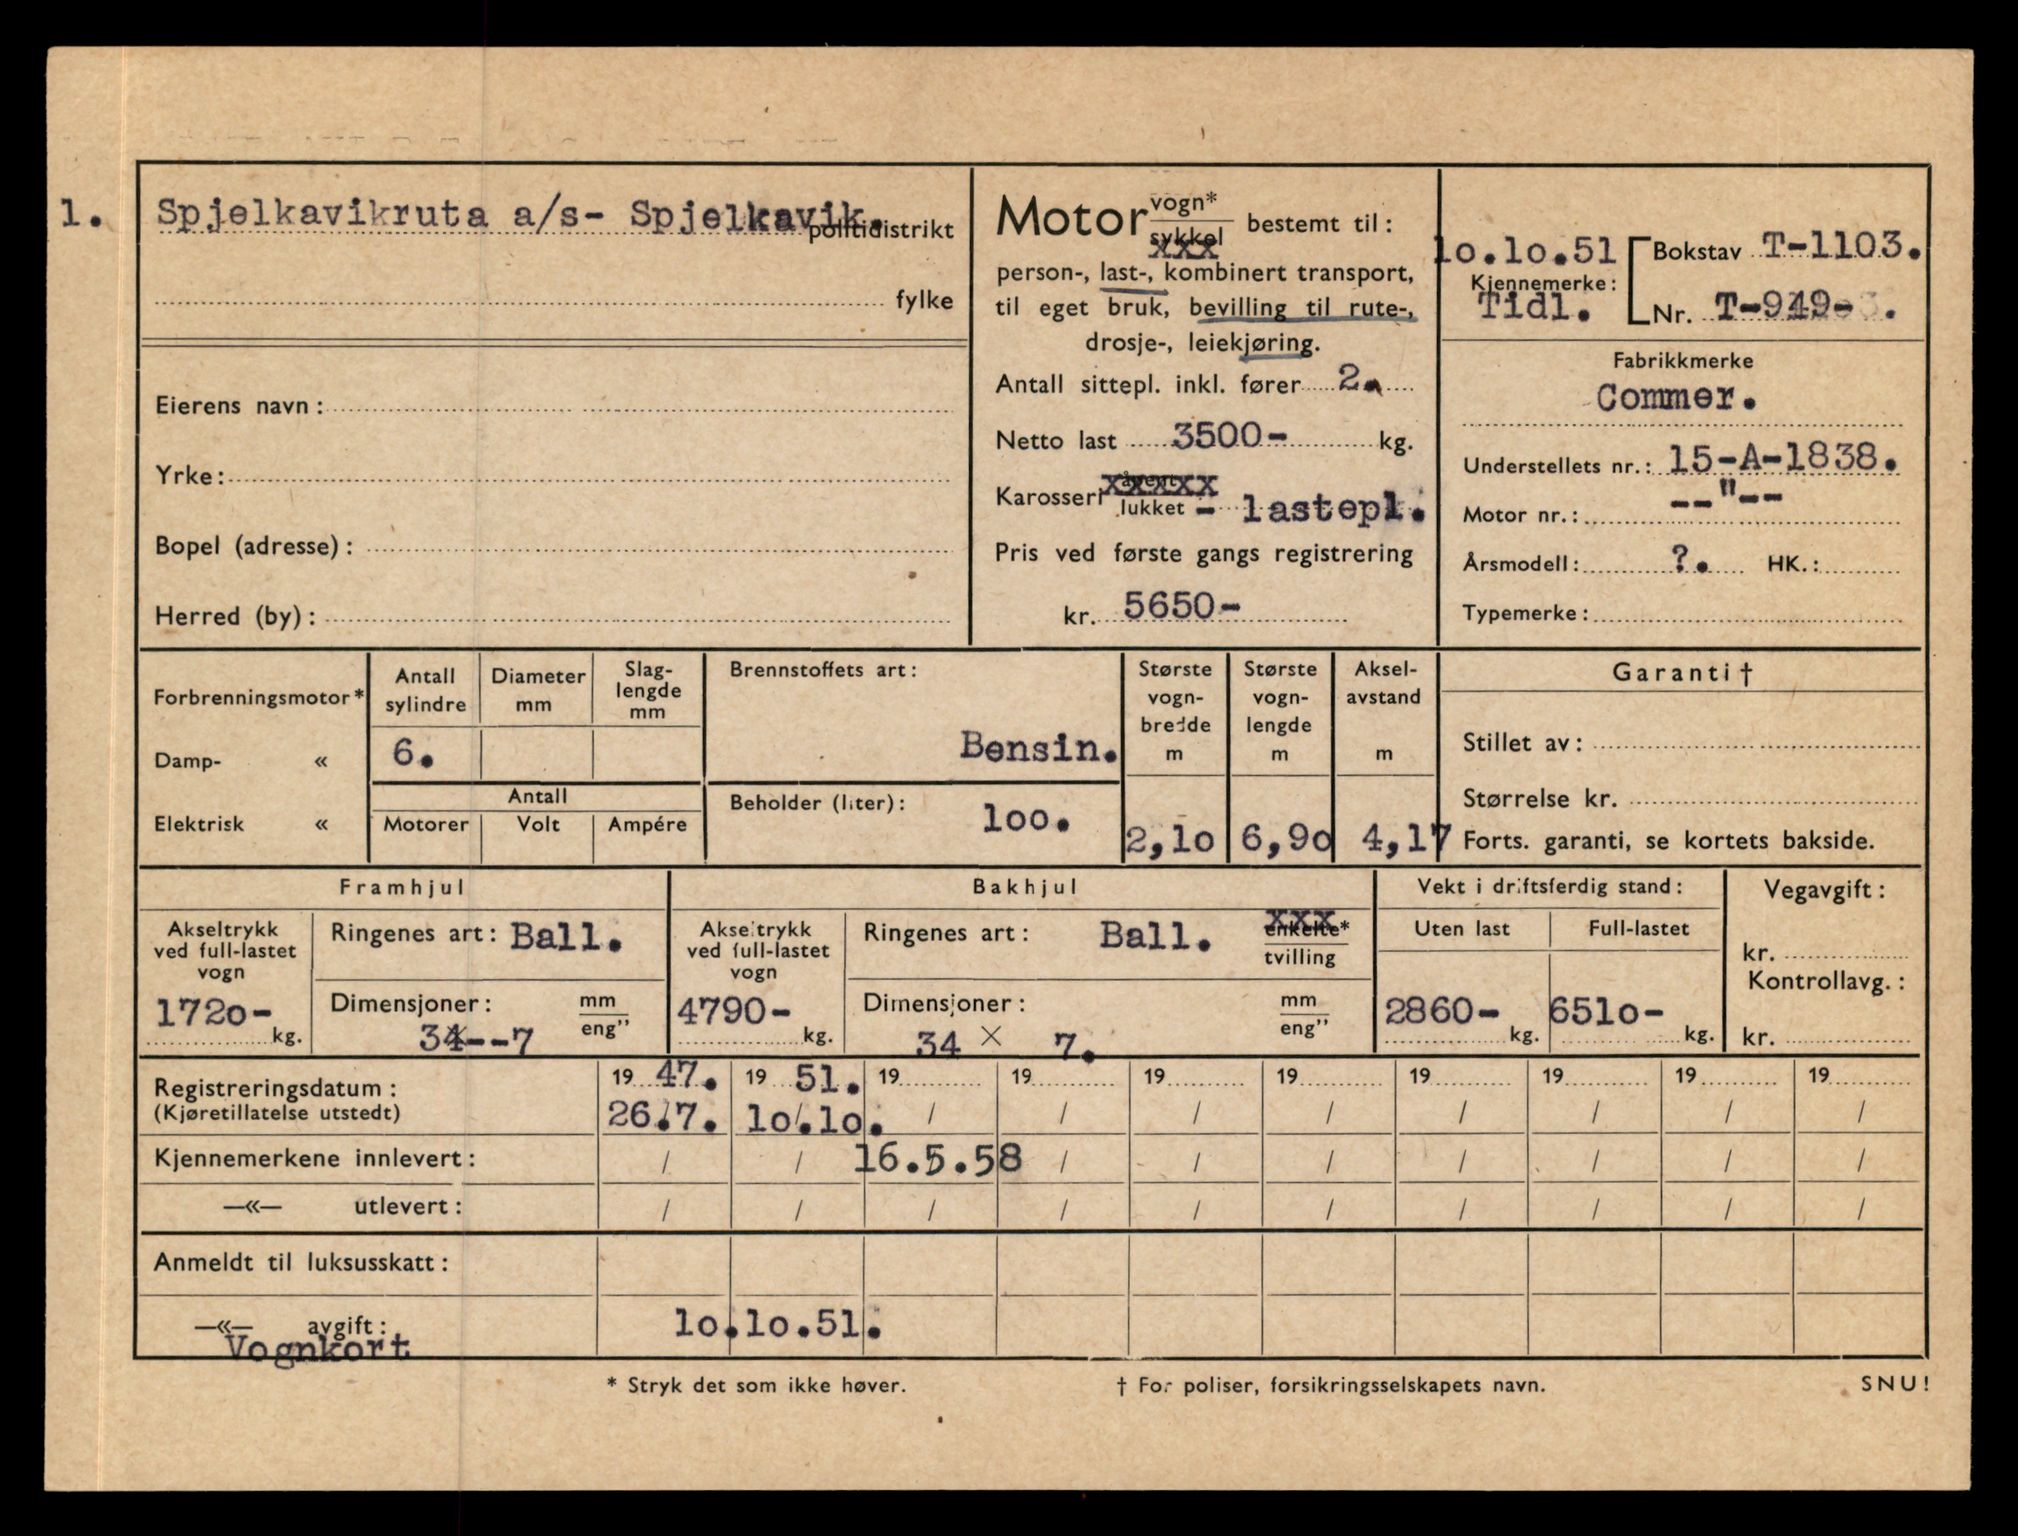 1. Spjelkavikruta a/s- Spjelkavik.
politidistrikt
fylke
Eierens navn:
Yrke:
Bopel (adresse):
Herred (by):
Motor vogn*
sykkel bestemt til:
xxx
person-, last-, kombinert transport,
til eget bruk, bevilling til rute-,
drosje-, leiekjøring.
Antall sittepl. inkl. fører 2.
Netto last 3500- kg.
Karosseri xxxxx
lukket - lastepl.
Pris ved første gangs registrering
kr. 5650-
1o.1o.51 Bokstav T-1103.
Kjennemerke:
Tidl. Nr. T-949-
Fabrikkmerke
Commer.
Understellets nr.: 15-A-1838.
Motor nr.: --"--
Årsmodell: ?. HK.:
Typemerke:
Forbrenningsmotor*
Damp- «
Elektrisk «
Antall sylindre
Diameter mm
Slag-lengde mm
6.
Antall
Motorer Volt Ampére
Brennstoffets art:
Bensin.
Beholder (liter): 1oo.
Største vogn-bredde m
2,1o
Største vogn-lengde m
6,9o
Aksel-avstand m
4,17
Garanti †
Stillet av:
Størrelse kr.
Forts. garanti, se kortets bakside.
Framhjul
Akseltrykk ved full-lastet vogn
172o- kg.
Ringenes art: Ball.
Dimensjoner: mm
eng"
34--7
Bakhjul
Akseltrykk ved full-lastet vogn
4790- kg.
Ringenes art: Ball. xxx
enkelte*
tvilling
Dimensjoner: mm
eng"
34 × 7.
Vekt i driftsferdig stand:
Uten last Full-lastet
2860- kg. 651o- kg.
Vegavgift:
kr.
Kontrollavg.:
kr.
Registreringsdatum: 19 47. 19 51. 19 19 19 19 19 19 19 19
(Kjøretillatelse utstedt) 26./7. 1o/.1o. / / / / / / / /
Kjennemerkene innlevert: / / 16.5.58 / / / / / / /
—«— utlevert: / / / / / / / / / /
Anmeldt til luksusskatt:
—«— avgift: 1o.1o.51.
Vognkort
* Stryk det som ikke høver. † For poliser, forsikringsselskapets navn. SNU!